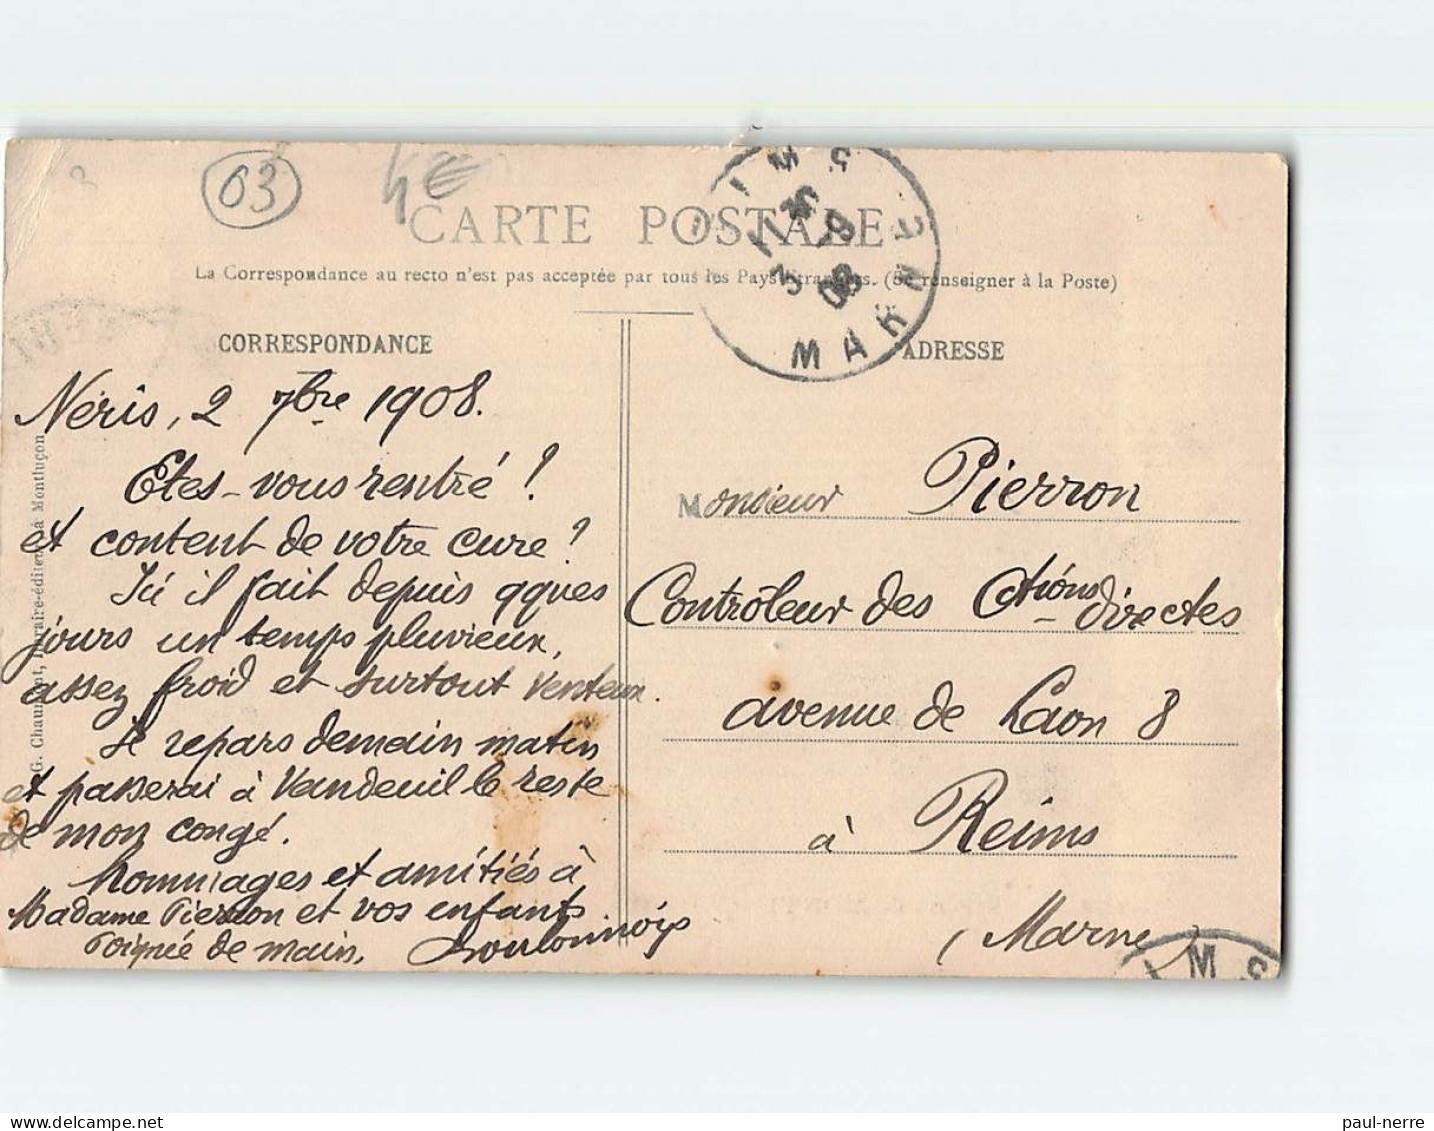 63
4€
CARTE POSTALE
La Correspondance au recto n'est pas acceptée par tous les Pays Etrangers. (Se renseigner à la Poste)
CORRESPONDANCE
Néris, 2 7bre 1908.
Etes-vous rentré !
et content de votre cure ?
Ici il fait depuis qques
jours un temps pluvieux,
assez froid et surtout venteux.
Je repars demain matin
et passerai à Vandeuil le reste
de mon congé.
Hommages et amitiés à
Madame Pierron et vos enfants.
Poignée de main,
G. Chaumont, libraire-éditeur à Montluçon
ADRESSE
Monsieur Pierron
Contrôleur des Ctions directes
avenue de Laon 8
à Reims
(Marne)
IMS
MARNE
3 -9
08
IMS
paul-nerre